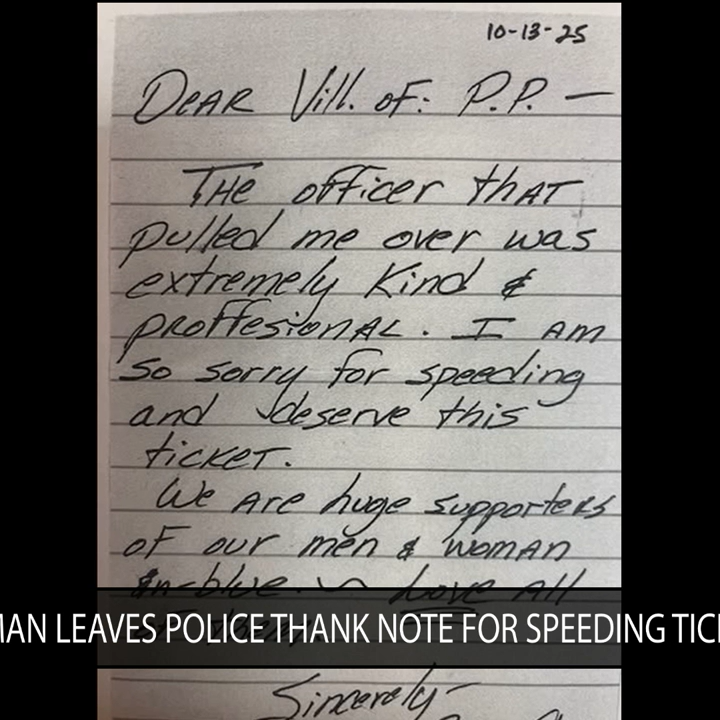 10-13-25
DEAR Vill. OF: P.P. —
THE officer that
pulled me over was
extremely Kind &
PROFFESIONAL. I AM
So sorry for speeding
and deserve this
ticket.
We ARE huge supporters
of our men & woman
in-blue. Love All
MAN LEAVES POLICE THANK NOTE FOR SPEEDING TIC
Sincerely-